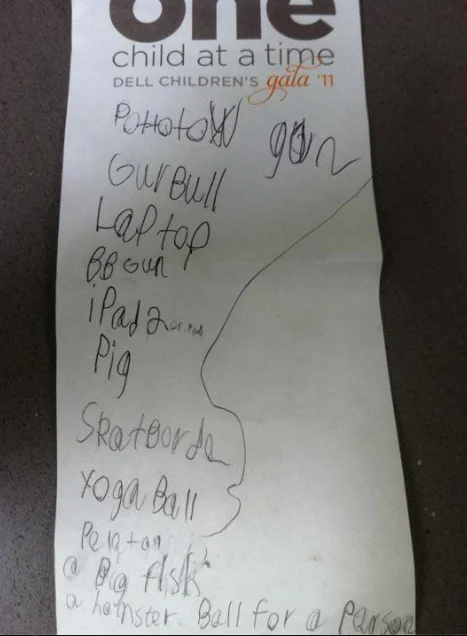 one
child at a time
DELL CHILDREN'S gala '11
Pottato gun
Gurbull
Laptop
BB Gun
iPad 2
Pig
Skatborde
Yoga Ball
a Big fish
a hamster Ball for a Person